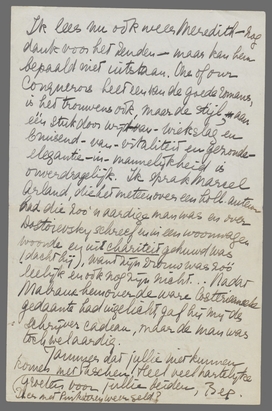 Ik lees nu ook weer Meredith – nog
dank voor het zenden – maar kan hem
bepaald niet uitstaan. One of our
Conquerors heet een van de goede romans,
is het trouwens ook, maar de stijl – aan
één stuk door
bruisend – van – vitaliteit en gezonde –
elegantie – in – mannelijkheid is
onverdragelijk. Ik sprak Marcel
Arland, die het meteen over een
had die zoo'n aardige man was en over
Dostoievsky schreef en in een woonwagen
woonde en uit charité gehuwd was
(dacht hij), want zijn vrouw was zóó
leelijk en ook nog zijn nicht... Nadat
Malraux hem over de ware
gedaante had ingelicht gaf hij mij de
schrijver cadeau, maar de man was
toch wel aardig.
Jammer dat jullie niet kunnen
komen met Paschen. Heel veel hartelijke
groeten voor jullie beiden, Bep.